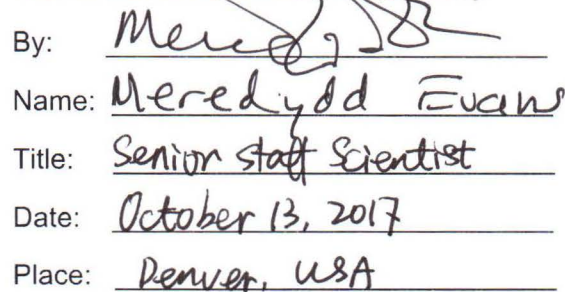 By:
Name: Meredydd Evans
Title: Senior staff Scientist
Date: October 13, 2017
Place: Denver, USA